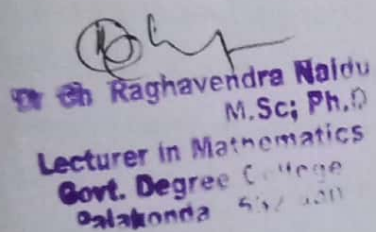 Dr Ch Raghavendra Naidu
M.Sc; Ph.D
Lecturer in Mathematics
Govt. Degree College
Palakonda